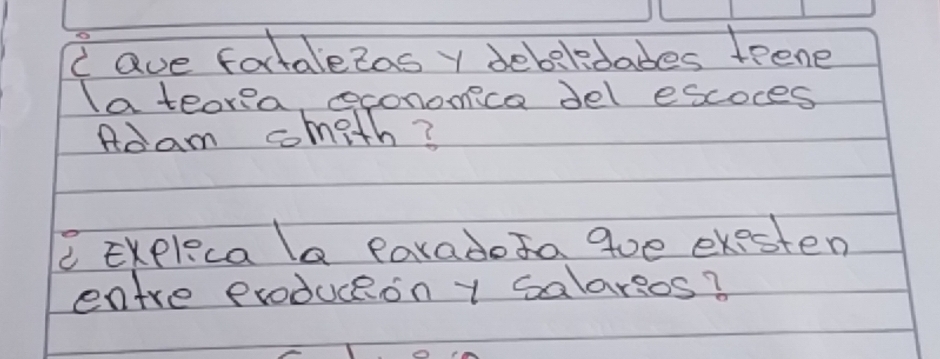 ¿ Que fortalezas y debilidades tiene
la teoria economica del escoces
Adam smith?
¿ Explica la paradoja que existen
entre producción y salarios?